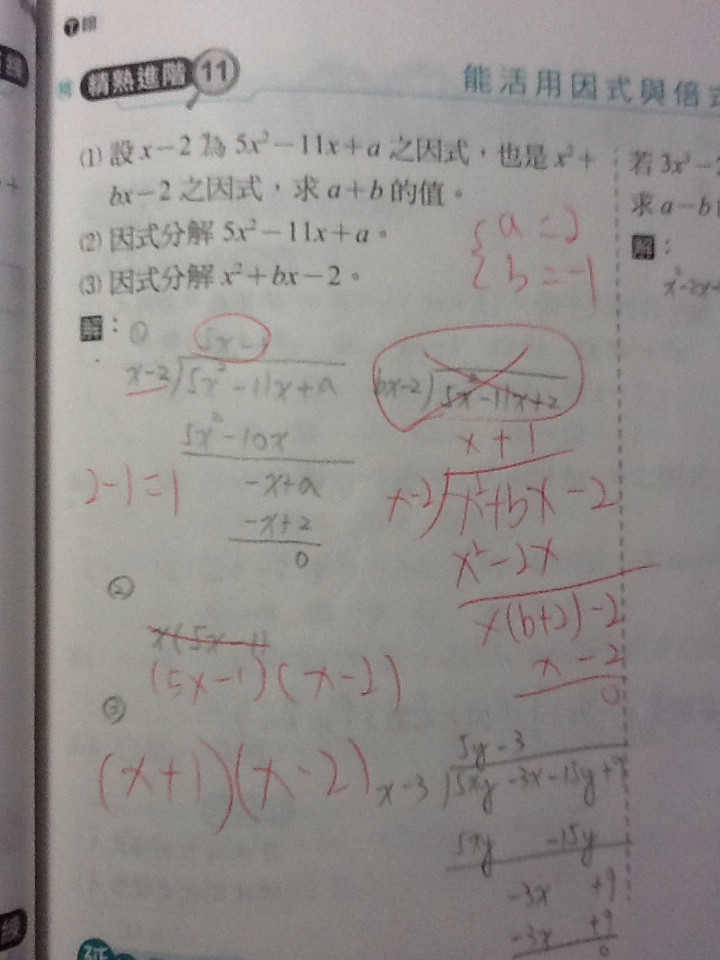 精熟進階 11
能活用因式與倍式
(1) 設 x－2 為 5x²－11x＋a 之因式，也是 x²＋
bx－2 之因式，求 a＋b 的值。
(2) 因式分解 5x²－11x＋a。
(3) 因式分解 x²＋bx－2。
{ a = 2
{ b = -1
解：①
5x-1
x-2)5x²-11x+a
5x²-10x
-x+a
-x+2
0
2-1=1
bx-2)5x²-11x+2
x+1
x-2)x²+bx-2
x²-2x
x(b+2)-2
x-2
0
②
x(5x-11
(5x-1)(x-2)
③
(x+1)(x-2)
5y-3
x-3)5xy-3x-15y+9
5xy -15y
-3x +9
-3x +9
0
若 3x³－2
求 a－b
解：